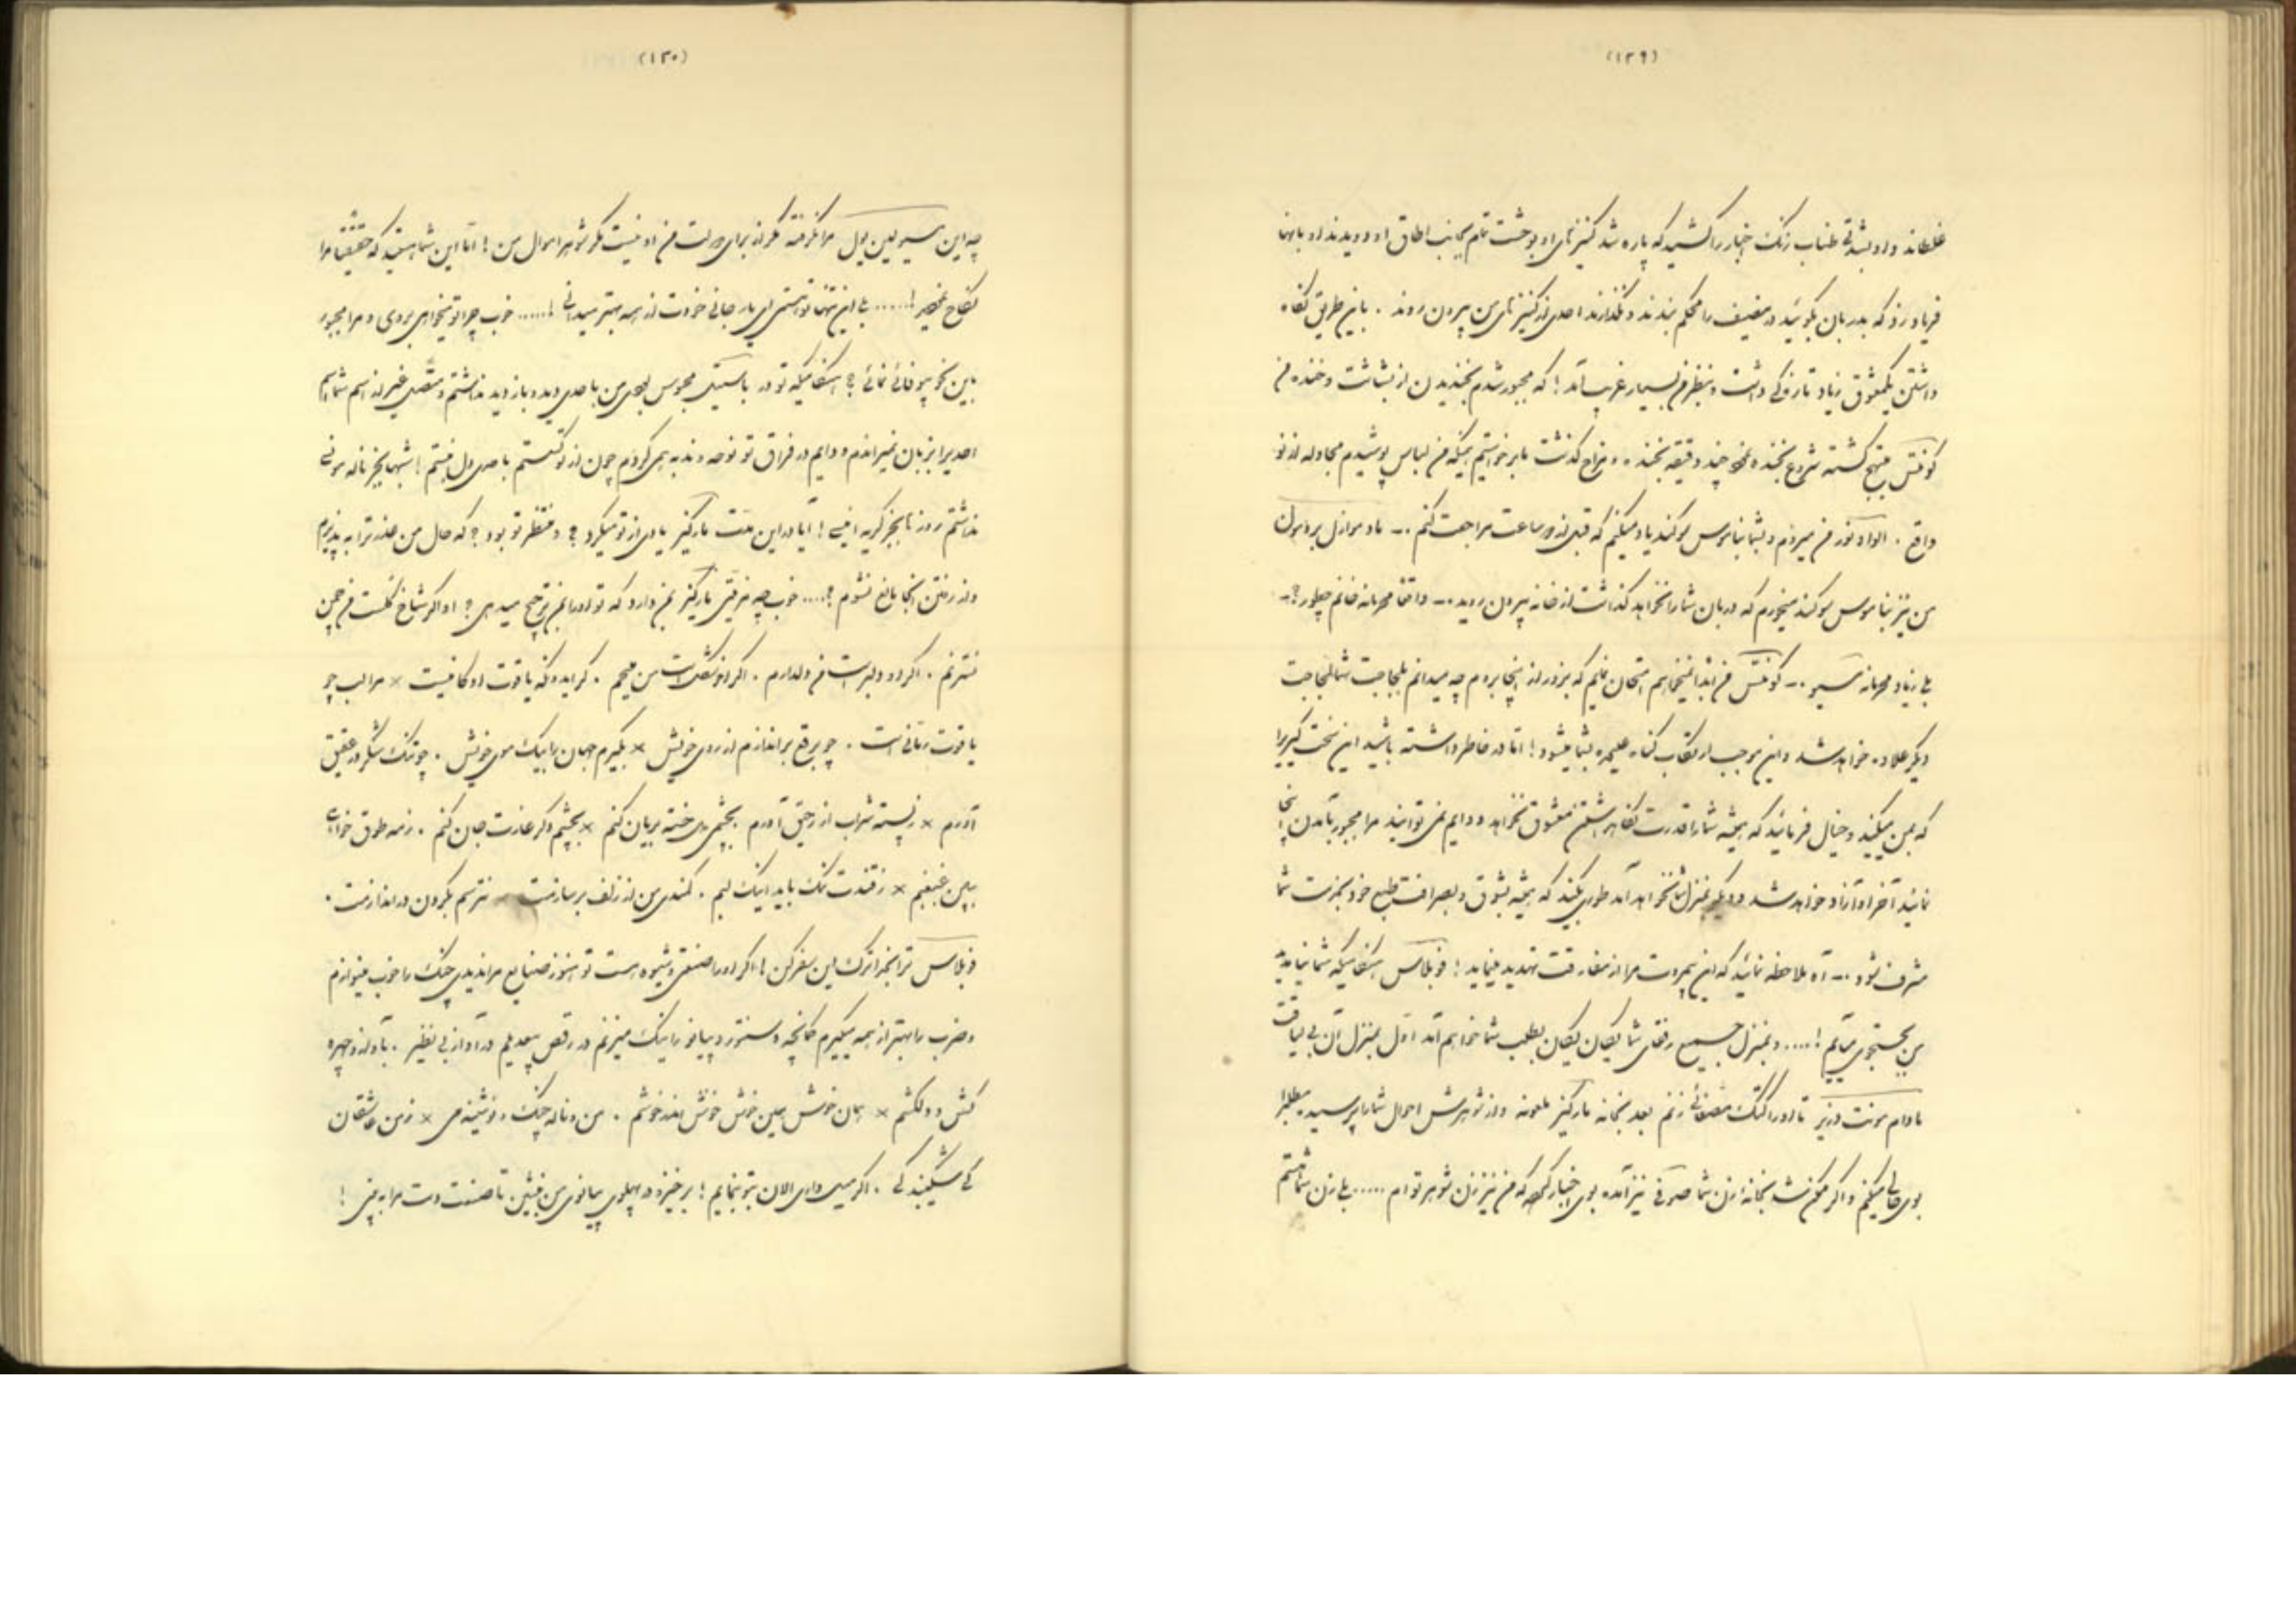 (۱۲۹)
غلطاند و او بشدتی طناب زنک اخبار را کشید که پاره شد کنیزهای او بوحشت تمام بجانب اطاق او دویدند او بانها
فریاد زد که بدربان بگوئید در مضیف را محکم ببندند و نگذارند احدی از کنیزهای من بیرون روند . باین طریق نگاه
داشتن یکمعشوق زیاد تازگی داشت و بنظر من بسیار غریب آمد ! که مجبور شدم بخندیدن از بشاشت و خنده من
کونتس مبتهج کشته شروع بخنده نمود چند دقیقه بخنده و مزاح گذشت تا برخواستیم همینکه من لباس پوشیدم مجادله از نو
واقع . الوداع من میروم و بشما بناموس سوکند یاد میکنم که قبل از دو ساعت مراجعت کنم .-
من نیز بناموس سوکند میخورم که دربان شما را نخواهد گذاشت از خانه بیرون روید .- واقعا محرمانه خانم چطور ؟-
بلی زیاد محرمانه مسیو .- کونتس من ابدا نمیخواهم امتحان نمایم که بزور از اینجا بروم چه میدانم بلجاجت شما لجاجت
دیگر علاوه خواهد شد و این موجب ارتکاب کناه عظیمه بشما میشود ! اما در خاطر داشته باشید این سخت گیریرا
که بمن میکنید و خیال فرمائید که همیشه شما را قدرت نگاهداشتن معشوق نخواهد و دایم نمی توانید مرا مجبور بآمدن اینجا
نمائید آخر او آزاد خواهد شد و دیگر بمنزل شما نخواهد آمد طوری بکنید که همیشه بشوق و بصرافت طبع خود بخدمت شما
مشرف شود .- آه ملاحظه نمائید که این بیمروت مرا از مفارقت تهدید مینماید ! فوبلاس هنگامیکه شما نیائید
من بجستجوی میآیم !.... و بمنزل جمیع رفقای شما یکان یکان بطلب شما خواهم آمد اول بمنزل آن بی لیاقت
مادام مونت دزیر تا او را کتک مفصلی زنم بعد بخانه مارکیز ملعونه و از شوهرش احوال شما را پرسیده مطلبرا
بوی حالی میکنم و اگر ممکن شد بخانه زن شما صوفی نیز آمده بوی اخبار کنم که من نیز زن شوهر تو ام ..... بلی زن شما هستم
(۱۳۰)
چه این مسیو لین یول مرا نگرفته مگر از برای دولت من او نیست مگر شوهر اموال من ! اما این شما هستید که حقیقتا مرا
نکاح نمودید !...... بلی این تنها تو هستی ای یار جانی خودت از همه بهتر میدانی !...... خوب چرا تو میخواهی بروی و مرا مجبور
باین نحو بیوفائی نمائی ؟ هنگامیکه تو در باستیک محبوس بودی من با احدی دید و بازدید نداشتم و متصل غیر از اسم شما اسم
احدیرا بزبان نمیراندم و دایم در فراق تو نوحه و ندبه همی کردم چون از تو کسستم با احدی دل نبستم ! شبها بجز ناله مونسی
نداشتم روز تا بجز گریه انیسی ! آیا در این مدت مارکیز یادی از تو میکرد ؟ و منتظر تو بود ؟ که حال من عذر ترا به پذیرم
و از رفتن آنجا مانع نشوم ؟.... خوب چه مزیتی مارکیز بمن دارد که تو او را بمن ترجیح میدهی ؟ او اگر شاخ گلست من چمن
نسترنم . اگر او دلبر است من دلدارم . اگر او شکر است من میحم . گر ایدونکه یاقوت او کانیست × مرا لب چو
یاقوت رمانی است . چو برقع براندازم از روی خویش × بگیرم جهان را بیک موی خویش . چو تنک شکر در عقیق
آورم × ز پسته شراب از رحیق آورم بچشمی دل خسته بریان کنم × بچشم دگر غارت جان کنم . ز مه طوق خواهی
ببین غبغبم × ز قندت نمک باید اینک لبم . کمندی من از زلف بر سازمت × نترسم بگردن در اندازمت .
فوبلاس ترا بخدا ترک این سفر کن ! اگر او را صنعتی و شیوه هست تو هنوز صنایع مرا ندیدی چنک را خوب مینوازم
و ضرب را بهتر از همه میگیرم کمانچه و سنتور و پیانو را نیک میزنم در رقص بیعدیلم در آواز بی نظیر . بآواز و چهره
کش و دلکشم × همان خوش همین خوش خوش اندر خوشم . من و ناله چنک و نوشینه می × ز من عاشقان
کی شکیبند کی . اگر میل داری الان بتو بنمایم ! برخیز و در پهلوی پیانوی من بنشین تا صنعت دست مرا به بینی !